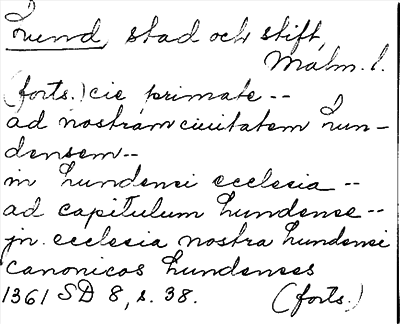 Lund, stad och stift,
Malm. l.
(forts.) cie primate --
ad nostram ciuitatem Lun-
densem --
in Lundensi ecclesia --
ad capitulum Lundense --
jn. ecclesia nostra Lundensi
canonicos Lundenses
1361 SD 8, s. 38. (forts.)